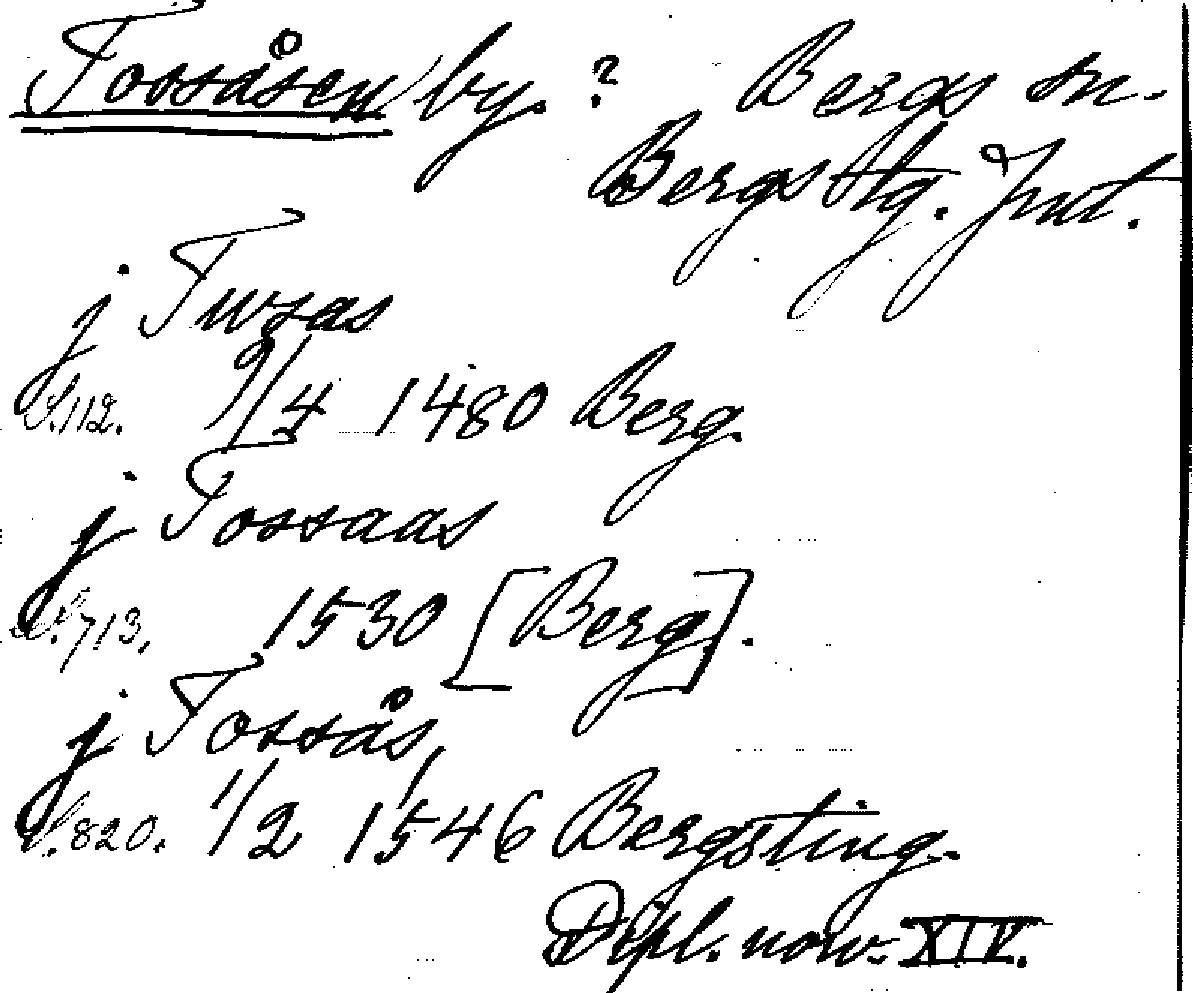 Fossåsen by. ? Bergs sn.
Bergs tg. Jmt.
j Fwsas
S. 112. 9/4 1480 Berg.
j Fossaas
S. 713. 1530 [Berg].
j Fossås,
S. 820. 1/2 1546 Bergsting.
Dipl. norv. XIV.